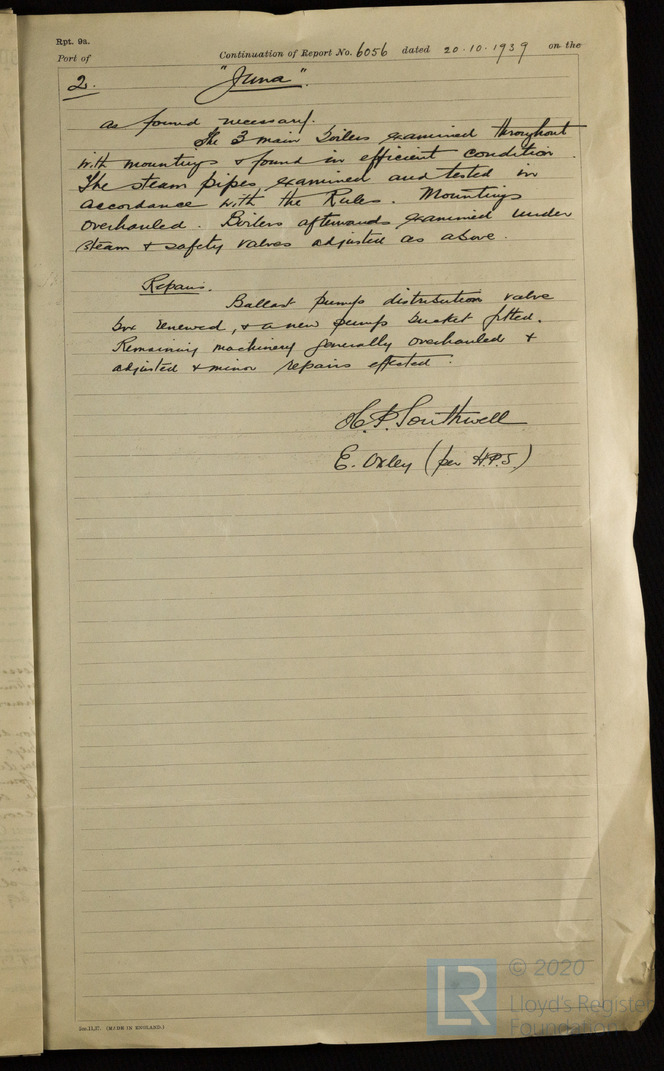 Rpt. 9a.
Port of Continuation of Report No. 6056 dated 20.10.1939 on the
2. "Juna".
as found necessary.
The 3 main boilers examined throughout
with mountings & found in efficient condition.
The steam pipes, examined and tested in
accordance with the Rules. Mountings
overhauled. Boilers afterwards examined under
steam & safety valves adjusted as above.
Repairs.
Ballast pumps distribution valve
box renewed, & a new pump bucket fitted.
Remaining machinery generally overhauled &
adjusted & minor repairs effected.
H.P. Southwell
E. Oxley (per H.P.S.)
(MADE IN ENGLAND.)
LR
© 2020
Lloyd's Register
Foundation